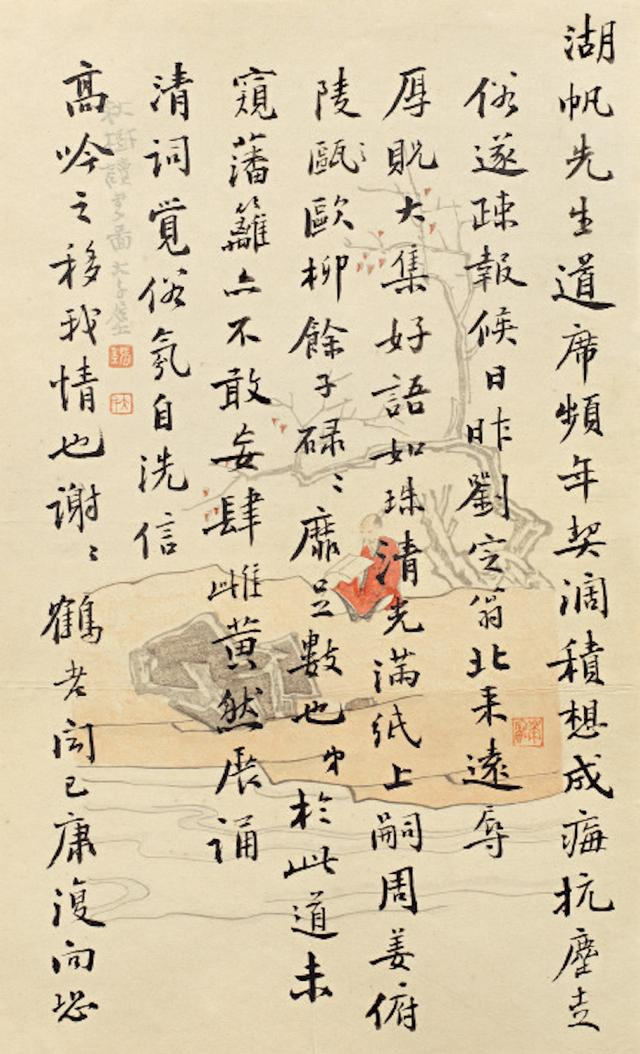 湖帆先生道席頻年契濶積想成痗抗塵走
俗遂疎報候日昨劉定翁北来遠辱
厚貺大集好語如珠清光滿纸上嗣周姜俯
陵甌歐柳餘子碌〻靡足數也弟於此道未
窺藩籬亦不敢妄肆雌黃然展誦
清詞覺俗氛自洗信
高吟之移我情也謝〻鶴老聞已康復向恐